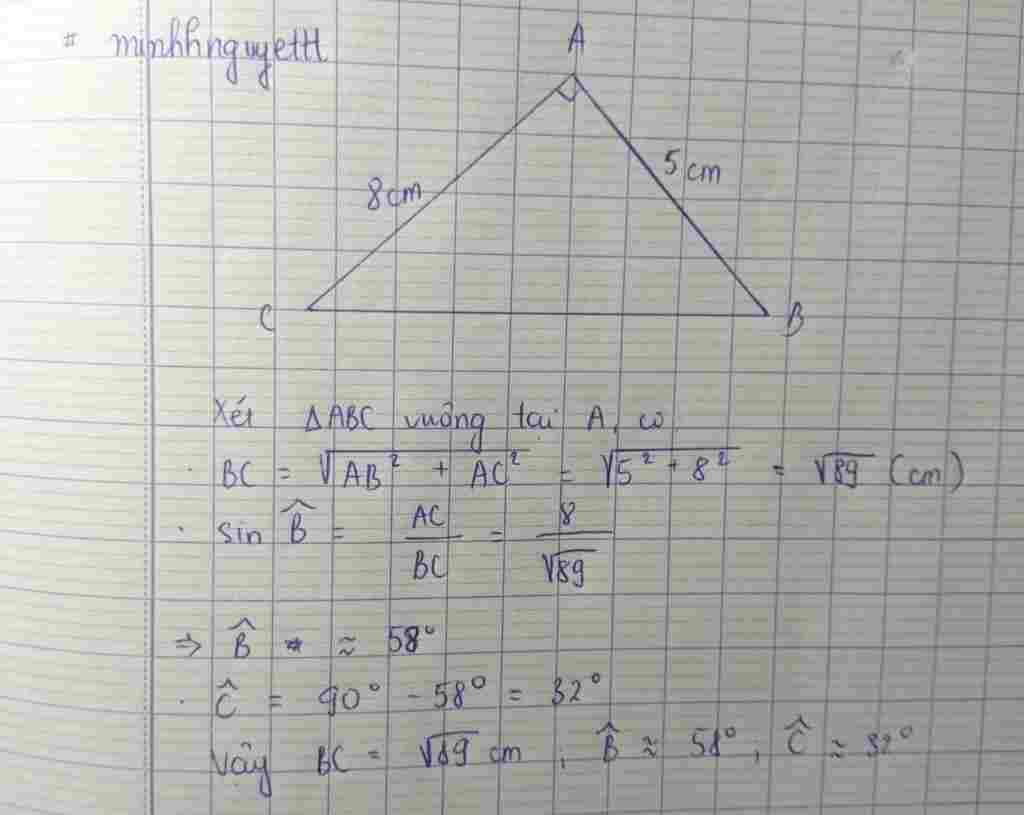 # minhhnguyettt
A
8cm
5cm
C
B
Xét ΔABC vuông tại A, có
· BC = √(AB² + AC²) = √(5² + 8²) = √89 (cm)
· Sin B̂ = AC/BC = 8/√89
⇒ B̂ ≈ 58°
· Ĉ = 90° - 58° = 32°
Vậy BC = √89 cm ; B̂ ≈ 58° ; Ĉ ≈ 32°